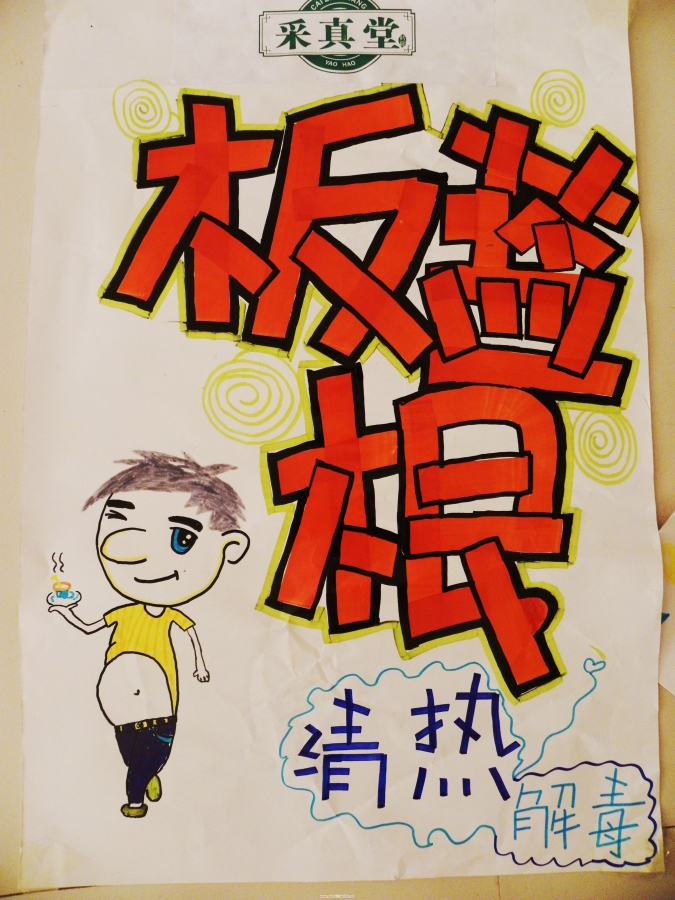 采真堂
YAO HAO
板蓝
根
清热
解毒